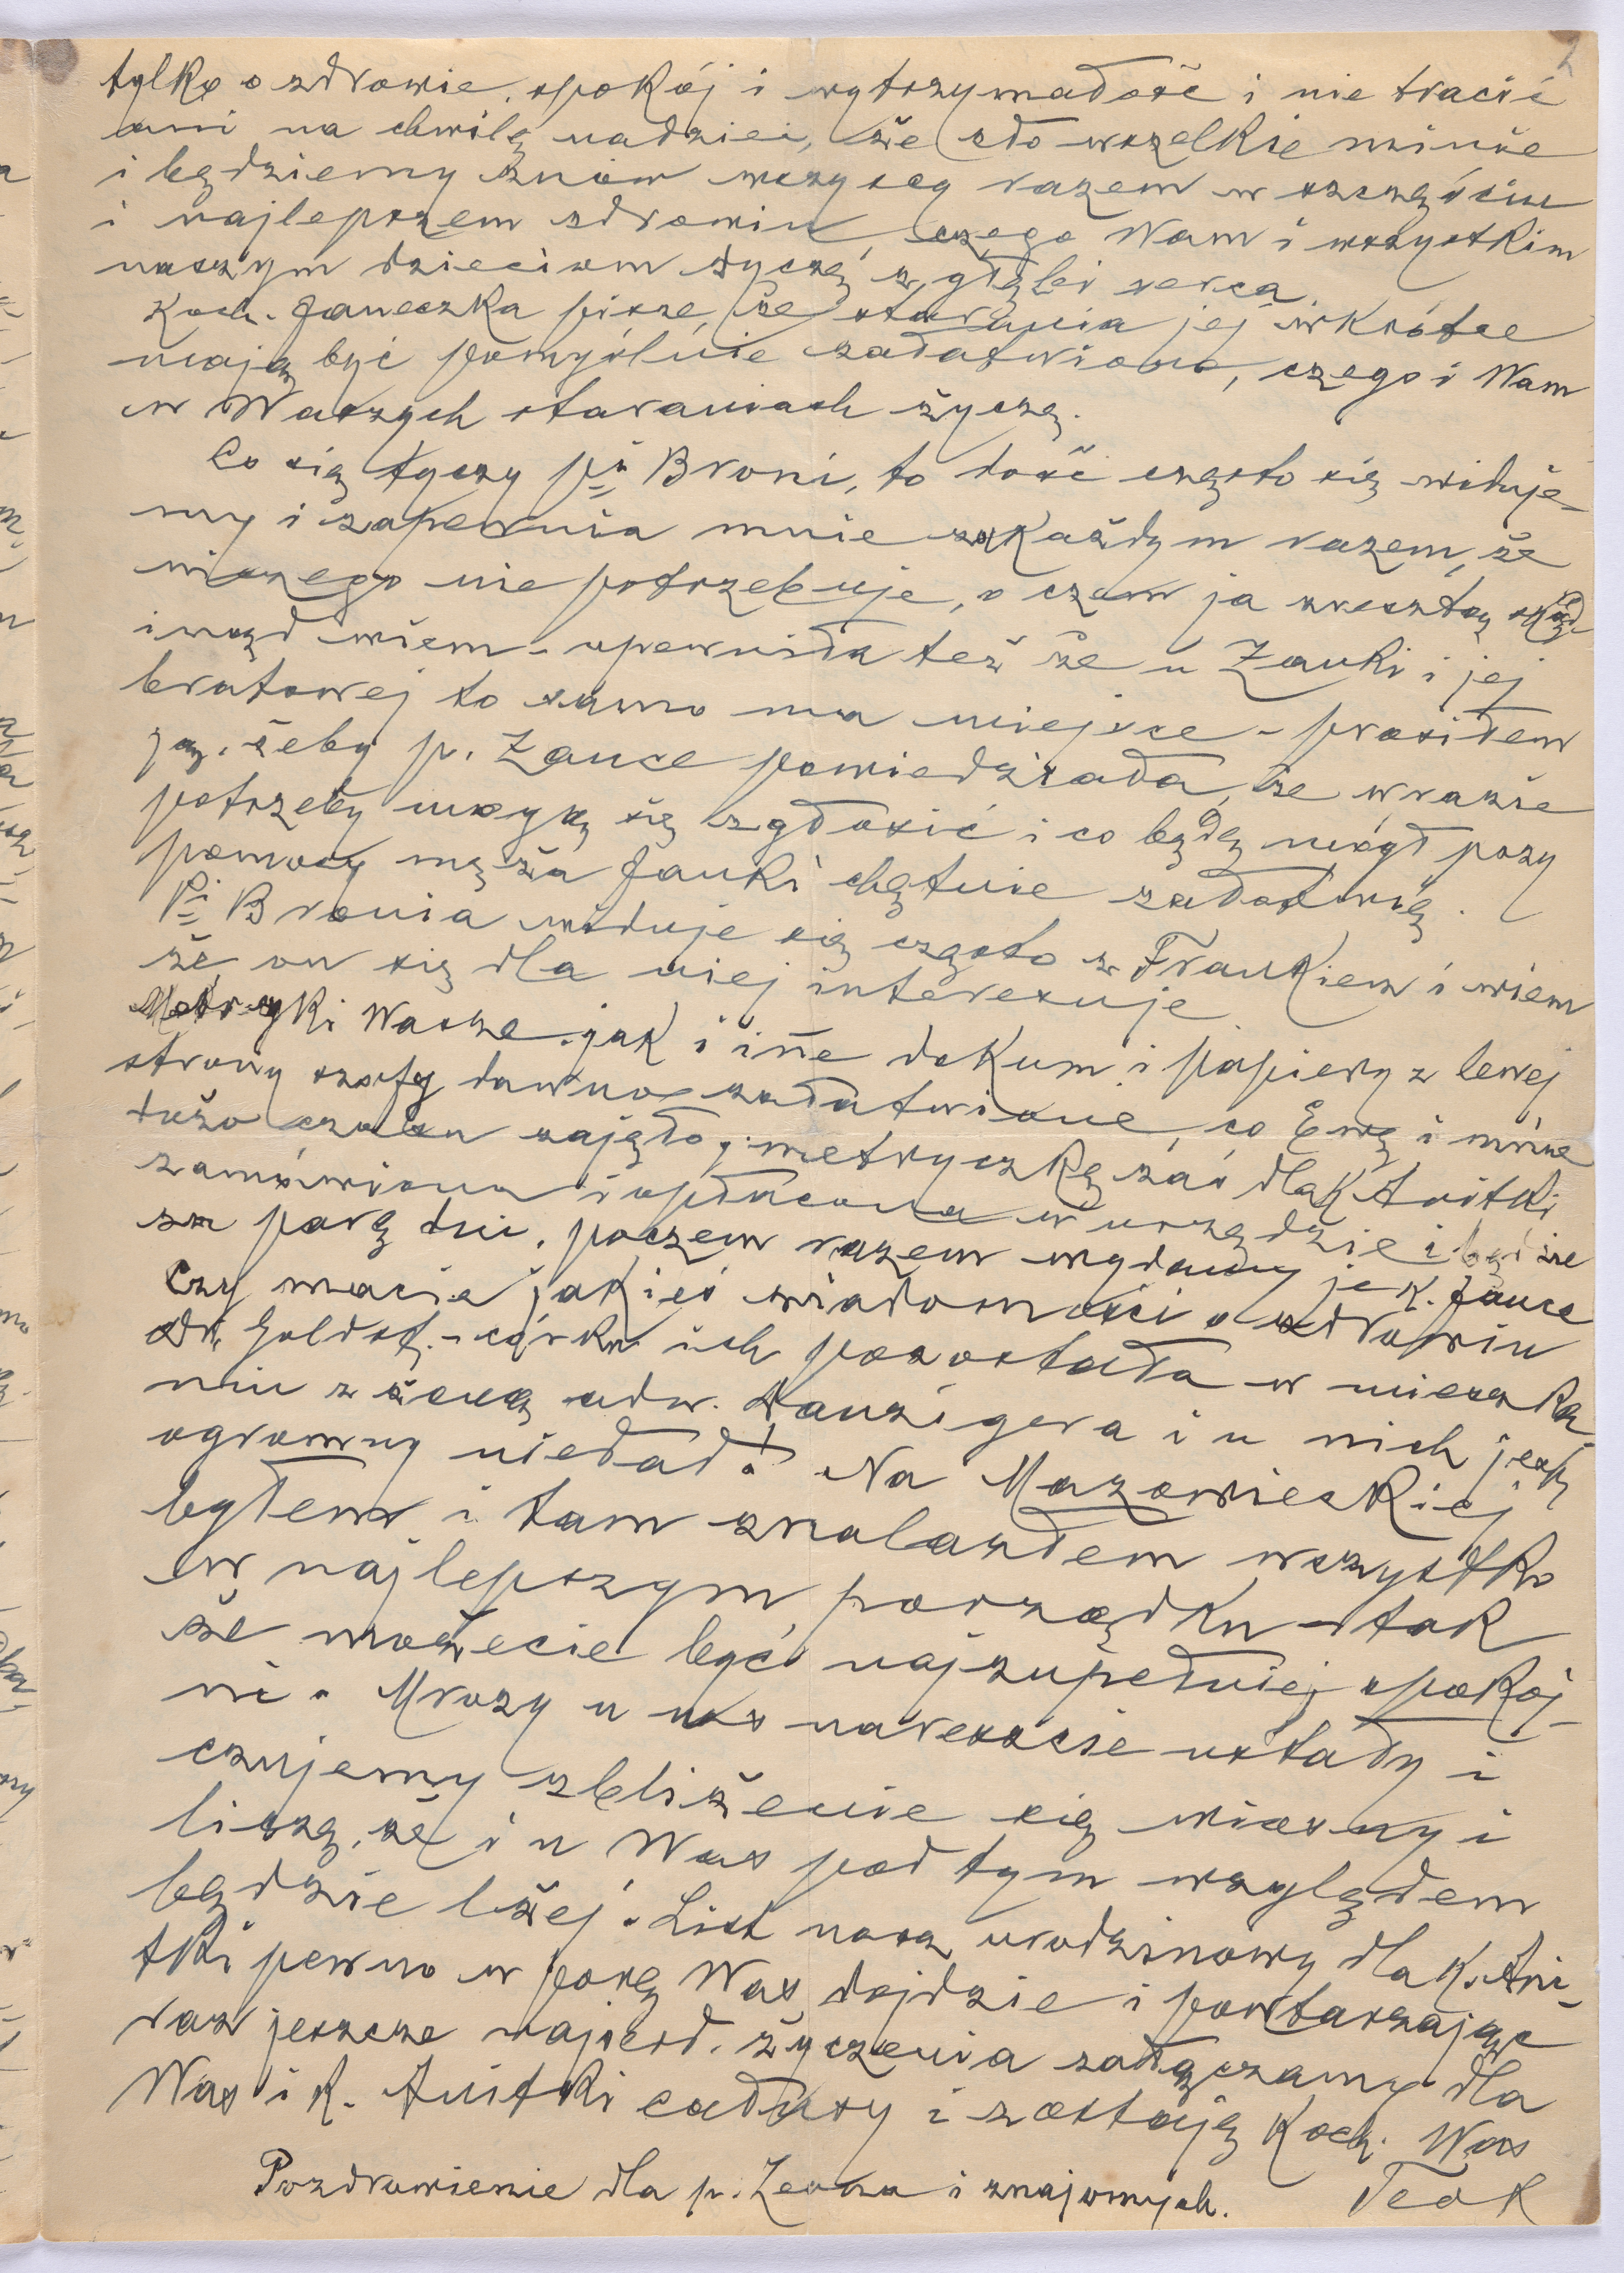 2
tylko o zdrowie, spokój i wytrzymałość i nie tracić
ani na chwilę nadziei, że zło wszelkie minie
i będziemy znów wszyscy razem w szczęściu
i najlepszem zdrowiu, czego Wam i wszystkim
naszym dzieciom życzę z głębi serca.
Koch. Janeczka pisze, że starania jej wkrótce
mają być pomyślnie załatwione, czego i Wam
w Waszych staraniach życzę.
Co się tyczy pń Broni, to dość często się widuje-
my i zapewnia mnie za każdym razem, że
niczego nie potrzebuje, o czem ja zresztą skąd-
inąd wiem - upewniła też że u Zanki i jej
bratowej to samo ma miejsce - prosiłem
ją, żeby p. Zance powiedziała, że w razie
potrzeby mogą się zgłosić i co będę mógł przy
pomocy męża Janki chętnie załatwię.
Pi Bronia widuje się często z Frankiem i wiem
że on się dla niej interesuje.
Metryki Wasze jak i ine dokum. i papiery z lewej
strony szafy dawno załatwione, co Ewę i mnie
dużo czasu zajęło; metryczkę zaś dla K. Anitki
zamówiona i opłacona w urzędzie i będzie
za parę dni, poczem razem wydamy je K. Jance
Czy macie jakieś wiadomości o zdrowiu
Dr. Goldst. - córka ich pozostała w mieszka-
niu z żoną adw. Danzigera i u nich jest
ogromny nieład! Na Mazowieckiej
byłem i tam znalazłem wszystko
w najlepszym porządku - tak
że możecie być najzupełniej spokoj-
ni. Mrozy u nas nareszcie ustały i
czujemy zbliżenie się wiosny i
liczę, że i u Was pod tym względem
będzie lżej. List nasz urodzinowy dla K. Ani-
tki pewno w porę Was dojdzie i powtarzając
raz jeszcze najserd. życzenia załączamy dla
Was i K. Anitki całusy i zostaję Koch. Was
Teok
Pozdrowienie dla p. Leona i znajomych.